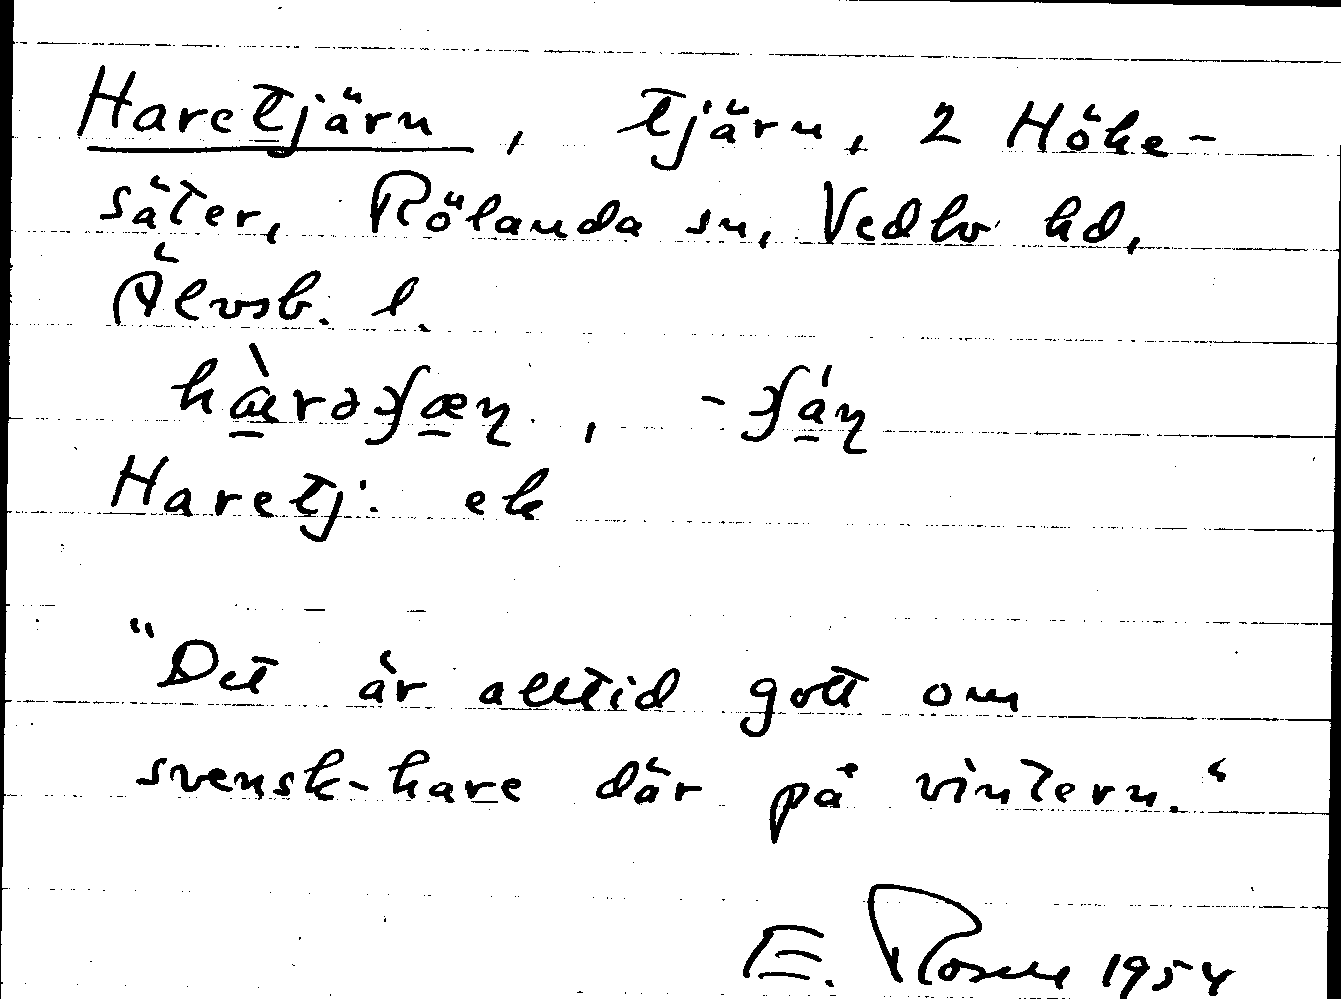 Haretjärn, tjärn, 2 Höke-
säter, Rölanda sn, Vedbo hd,
Älvsb. l.
Haretj: ek
"Det är alltid gott om
svensk-hare där på vintern."
E. Rosell 1954